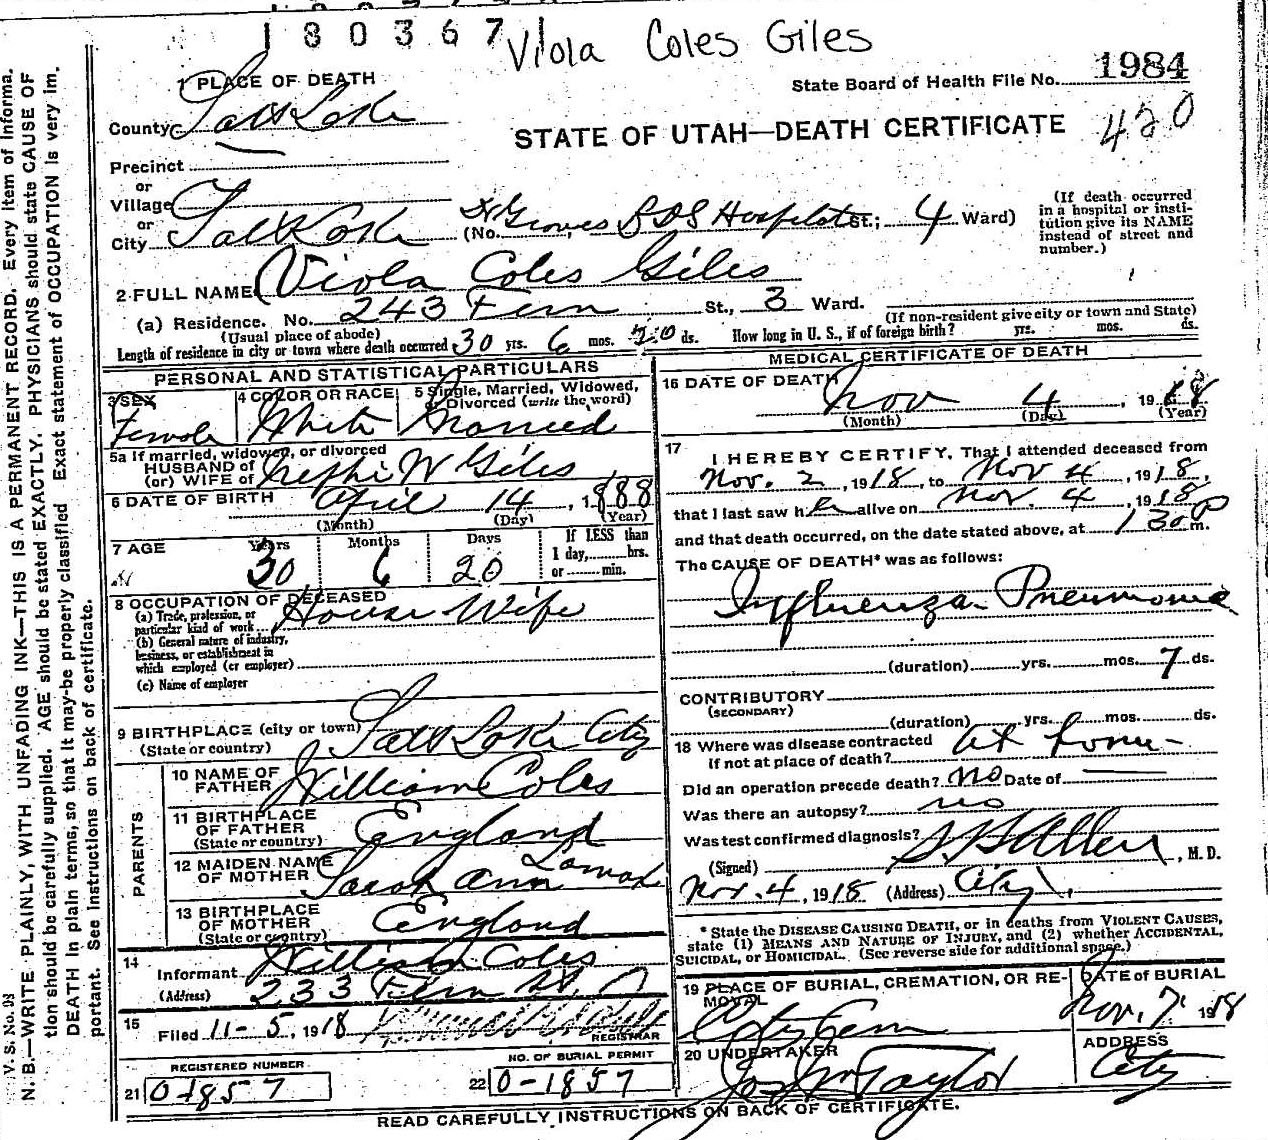 180367
Viola Coles Giles
State Board of Health File No. 1984
420
STATE OF UTAH—DEATH CERTIFICATE
1 PLACE OF DEATH
County Salt Lake
Precinct
or
Village
or
City Salt Lake (No. Dr Groves LDS Hospital St.; 4 Ward)
(If death occurred in a hospital or insti-
tution give its NAME
instead of street and
number.)
2 FULL NAME Viola Coles Giles
(a) Residence. No. 243 Fern St., 3 Ward.
(Usual place of abode)
(If non-resident give city or town and State)
Length of residence in city or town where death occurred 30 yrs. 6 mos. 20 ds. How long in U. S., if of foreign birth? yrs. mos. ds.
PERSONAL AND STATISTICAL PARTICULARS
3 SEX Female
4 COLOR OR RACE White
5 Single, Married, Widowed,
or Divorced (write the word)
Married
5a If married, widowed, or divorced
HUSBAND of
(or) WIFE of Nephi W Giles
6 DATE OF BIRTH April 14, 1888
(Month) (Day) (Year)
7 AGE Years 30 Months 6 Days 20
If LESS than
1 day, hrs.
or min.
8 OCCUPATION OF DECEASED
(a) Trade, profession, or
particular kind of work House Wife
(b) General nature of industry,
business, or establishment in
which employed (or employer)
(c) Name of employer
9 BIRTHPLACE (city or town) Salt Lake City
(State or country)
PARENTS
10 NAME OF
FATHER William Coles
11 BIRTHPLACE
OF FATHER England
(State or country)
12 MAIDEN NAME
OF MOTHER Sarah Ann Lomax
13 BIRTHPLACE
OF MOTHER England
(State or country)
14
Informant William Coles
(Address) 233 Fern
15
Filed 11-5, 1918
REGISTRAR
REGISTERED NUMBER
21 0-1857
NO. OF BURIAL PERMIT
22 0-1857
MEDICAL CERTIFICATE OF DEATH
16 DATE OF DEATH Nov 4, 1918
(Month) (Day) (Year)
17
I HEREBY CERTIFY, That I attended deceased from
Nov. 2, 1918, to Nov 4, 1918,
that I last saw her alive on Nov. 4, 1918
and that death occurred, on the date stated above, at 1 30 P m.
The CAUSE OF DEATH* was as follows:
Influenza Pneumonia
(duration) yrs. mos. 7 ds.
CONTRIBUTORY
(SECONDARY)
(duration) yrs. mos. ds.
18 Where was disease contracted
if not at place of death? at home
Did an operation precede death? no Date of
Was there an autopsy? no
Was test confirmed diagnosis?
(Signed) Allen, M. D.
Nov. 4, 1918 (Address) City
* State the DISEASE CAUSING DEATH, or in deaths from VIOLENT CAUSES,
state (1) MEANS AND NATURE OF INJURY, and (2) whether ACCIDENTAL,
SUICIDAL, or HOMICIDAL. (See reverse side for additional space.)
19 PLACE OF BURIAL, CREMATION, OR RE-
MOVAL
City Cem
DATE of BURIAL
Nov. 7, 1918
20 UNDERTAKER
Jos Wm Taylor
ADDRESS
City
READ CAREFULLY INSTRUCTIONS ON BACK OF CERTIFICATE.
V. S. No.
N. B.—WRITE PLAINLY, WITH UNFADING INK—THIS IS A PERMANENT RECORD. Every item of informa-
tion should be carefully supplied. AGE should be stated EXACTLY. PHYSICIANS should state CAUSE OF
DEATH in plain terms, so that it may be properly classified. Exact statement of OCCUPATION is very im-
portant. See instructions on back of certificate.